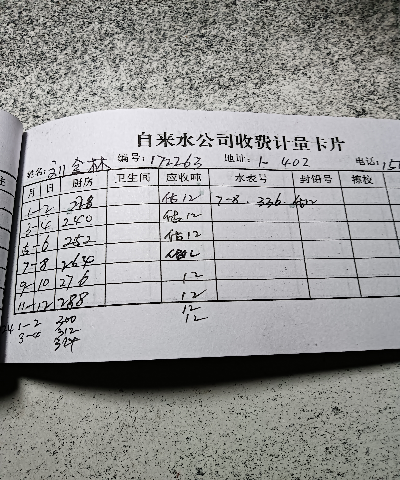 自来水公司收费计量卡片
姓名: 金林 编号: 172263 地址: 1-402 电话: 15
月 日 厨房 卫生间 应收吨 水表号 封铅号 撩校
1-2 估12 7-8. 336.
3-4 240 估12
5-6 252 估12
7-8 264
9-10 276 12
11-12 288 12
1-2 300 12
3-4 312 12
324